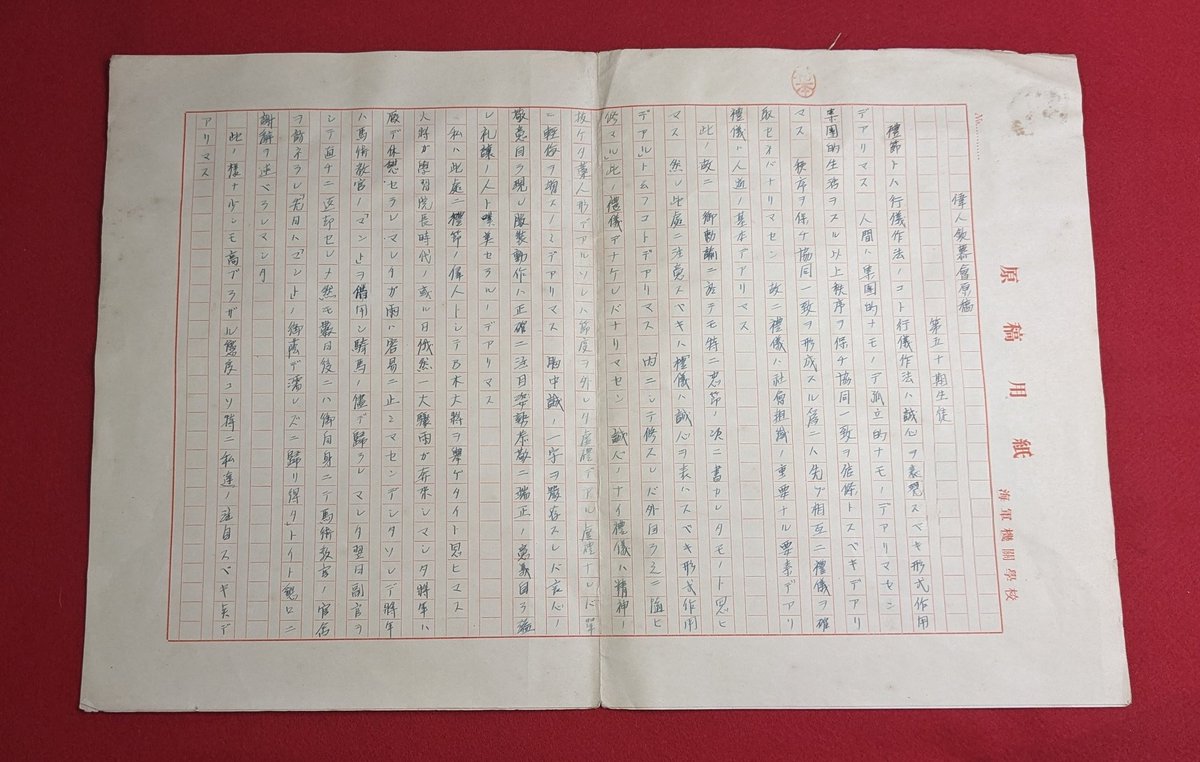 原稿用紙
海軍機關學校
No.
偉人敬慕會原稿
第五十期生徒
禮節トハ行儀作法ノコト行儀作法ハ誠心ヲ表現スベキ形式作用
デアリマス 人間ハ集團的ナモノデ孤立的ナモノデアリマセン
集團的生活ヲスル以上秩序ヲ保チ協同一致ヲ信條トスベキデアリ
マス 秩序ヲ保チ協同一致ヲ形成スル為ニハ先ヅ相互ニ禮儀ヲ確
取セネバナリマセン 故ニ禮儀ハ社會組織ノ重要ナル要素デアリ
禮儀ハ人道ノ基本デアリマス
此ノ故ニ 御勅諭ニ於テモ特ニ忠節ノ次ニ書カレタモノト思ヒ
マス 然シ此處ニ注意スベキハ「禮儀ハ誠心ヲ表ハスベキ形式作用
デアル」ト云フコトデアリマス 内ニシテ修スレバ外自ラ之ニ随ヒ
修マル」此ノ禮儀デナケレバナリマセン 誠心ノナイ禮儀ハ精神ノ
抜ケタ藁人形デアルソレハ節度ヲ外レタ虚禮デアル虚禮ナレバ單
ニ輕侮ヲ招スノミデアリマス 胸中誠ノ一字ヲ嚴存スレバ言心ノ
敬意自ラ現レ服装動作ハ正確ニ注目姿勢亦敬ニ端正ノ意義自ラ強
レ礼譲ノ人ト嘆美セラルヽノデアリマス
私ハ此處ニ禮節ノ偉人トシテ乃木大将ヲ擧ゲタイト思ヒマス
大将ガ學習院長時代ノ或ル日俄然一大驟雨ガ奔来シマシタ将軍ハ
厩デ休憩セラレマシタガ雨ハ容易ニ止ミマセンデシタソレデ将軍
ハ馬術教官ノ「マント」ヲ借用シ騎馬ノ儘デ歸ラレマシタ翌日副官ヲ
シテ直チニ返却セシメ然モ數日後ニ 御自身ニテ馬術教官ノ官舎
ヲ訪ネラレ「先日ハ「マント」ノ御蔭デ濡レズニ歸リ得タ」トイト懇ロニ
謝辭ヲ述ベラレマシタ
此ノ様ナ少シモ高ブラザル態度コソ特ニ私達ノ注目スベキ点デ
アリマス